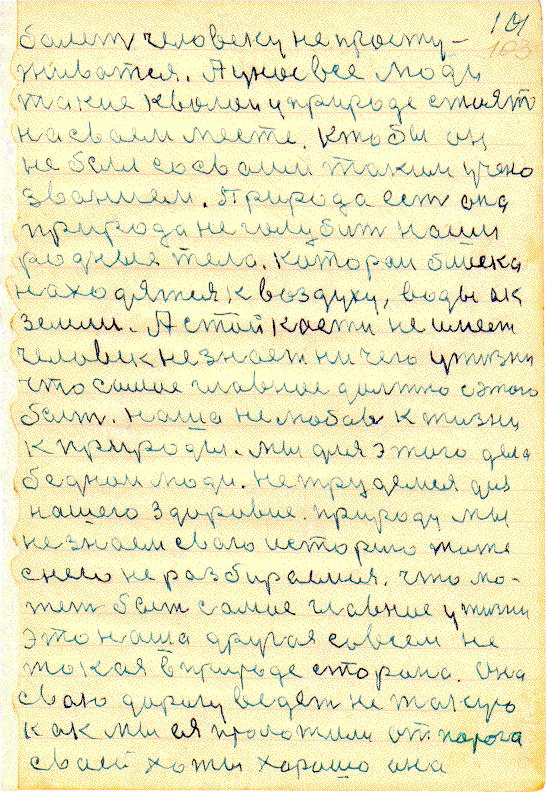 101
103
балеть человеку не просту-
живатся. А у нас все люди
такие к волей у природе стоять
на своем месте. Кто бы он
не был со своим таким учено
званием. Природа есть она
природа не голубить наши
родныя тела. Которои близка
находятся к воздуху, воды а к
земли. А стойкости не имеет
человек не знает ни чего у жизни
что самое главное должно с этого
быть. Наша не любов к жизни
к природы. Мы для этого дела
бедной люди. Не трудемся для
нашего здоровие. природу мы
не знаем сваю историю тоже
с нею не разбираемия. Что мо-
жет быт самое главное у жизни
это наша другая совсем не
токая в природе сторана. Она
сваю дорогу ведет не такую
как мы ея проложили от порога
сваей хаты хорошо она